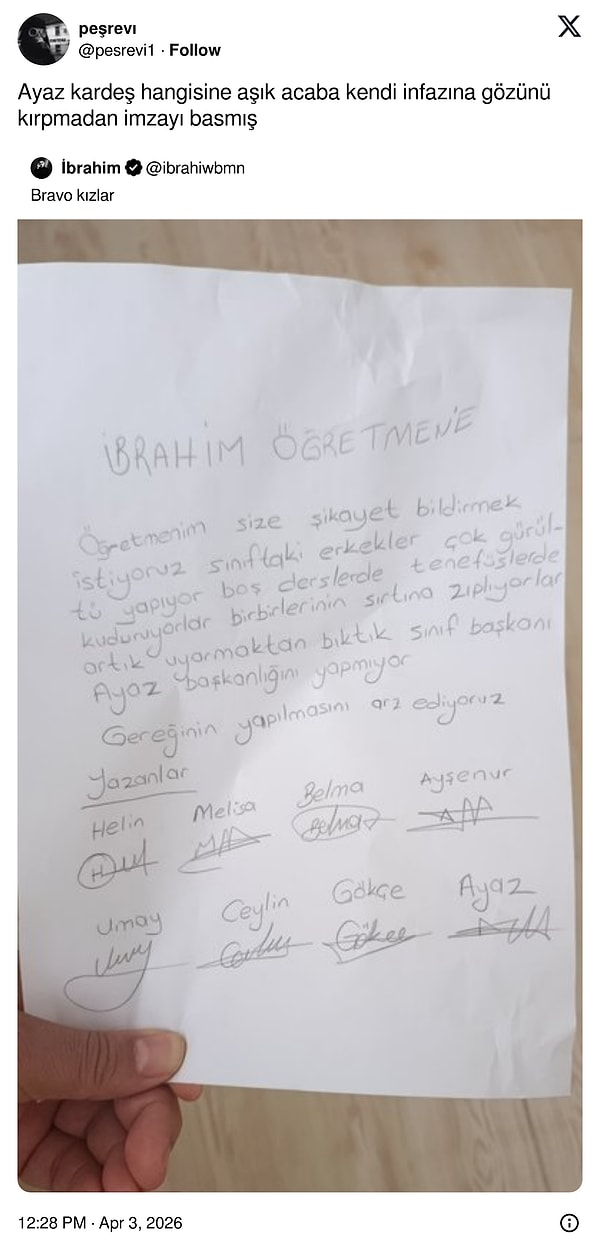 peşrevı
@pesrevi1 · Follow
Ayaz kardeş hangisine aşık acaba kendi infazına gözünü
kırpmadan imzayı basmış
İbrahim @ibrahiwbmn
Bravo kızlar
İBRAHİM ÖĞRETMEN'E
Öğretmenim size şikayet bildirmek
istiyoruz sınıftaki erkekler çok gürül-
tü yapıyor boş derslerde tenefüslerde
kuduruyorlar birbirlerinin sırtına zıplıyorlar
artık uyarmaktan bıktık sınıf başkanı
Ayaz başkanlığını yapmıyor
Gereğinin yapılmasını arz ediyoruz
Yazanlar
Helin Melisa Belma Ayşenur
Belma
Umay Ceylin Gökçe Ayaz
Umay Ceylin Gökçe
12:28 PM · Apr 3, 2026